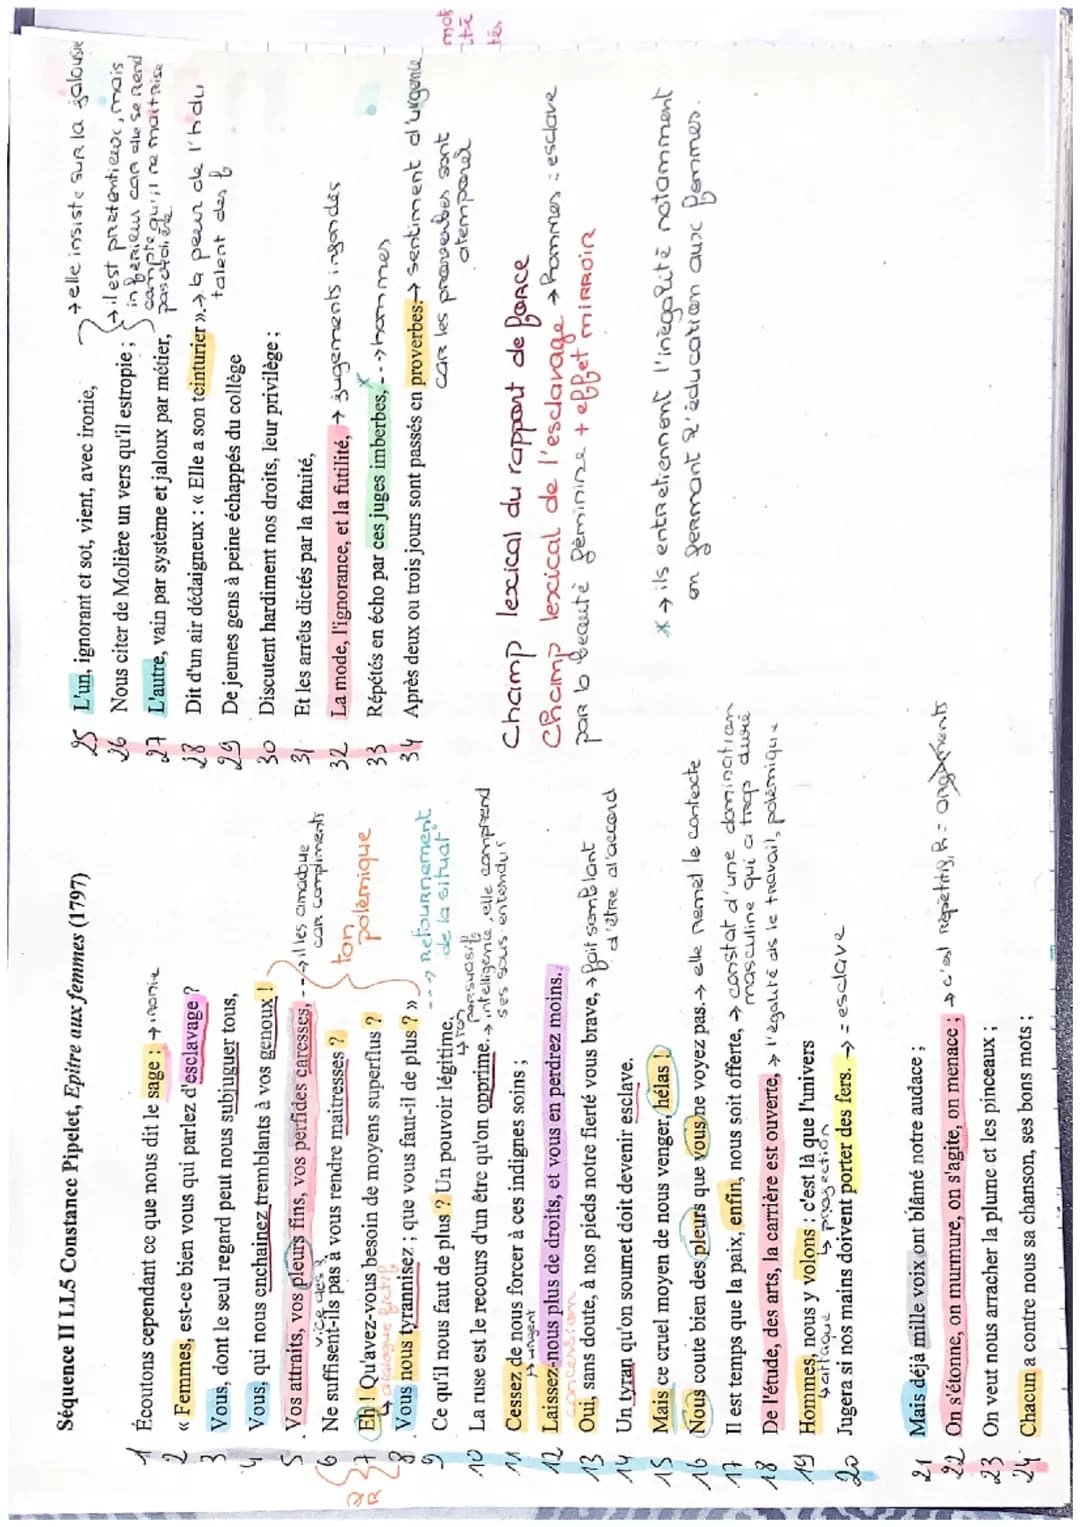 Séquence II LL5 Constance Pipelet, Epitre aux femmes (1797)
1 Écoutons cependant ce que nous dit le sage : → ironie
2 « Femmes, est-ce bien vous qui parlez d'esclavage ?
3 Vous, dont le seul regard peut nous subjuguer tous,
4 Vous, qui nous enchaînez tremblants à vos genoux !
5 Vos attraits, vos pleurs fins, vos perfides caresses, ---> il les amadoue
car compliments
vice des
6 Ne suffisent-ils pas à vous rendre maîtresses ?
ton
polémique
7 Eh ! Qu'avez-vous besoin de moyens superflus ?
QR
↳ dialogue fictif
8 Vous nous tyrannisez ; que vous faut-il de plus ? »
---> Retournement
de la situat°
9 Ce qu'il nous faut de plus ? Un pouvoir légitime.
↳ ton persuasif
10 La ruse est le recours d'un être qu'on opprime. → intelligence, elle comprend
ses sous-entendus
11 Cessez de nous forcer à ces indignes soins ;
↳ urgent
12 Laissez-nous plus de droits, et vous en perdrez moins.
concession
13 Oui, sans doute, à nos pieds notre fierté vous brave, → fait semblant
d'être d'accord
14 Un tyran qu'on soumet doit devenir esclave.
15 Mais ce cruel moyen de nous venger, hélas !
16 Nous coute bien des pleurs que vous ne voyez pas. → elle remet le contexte
17 Il est temps que la paix, enfin, nous soit offerte, → constat d'une domination
masculine qui a trop duré
18 De l'étude, des arts, la carrière est ouverte, → l'égalité ds le travail, polémique
19 Hommes, nous y volons : c'est là que l'univers
↳ attaque ↳ projection
20 Jugera si nos mains doivent porter des fers. → = esclave
21 Mais déjà mille voix ont blâmé notre audace ;
22 On s'étonne, on murmure, on s'agite, on menace ; → c'est répétitif, h =
23 On veut nous arracher la plume et les pinceaux ;
24 Chacun a contre nous sa chanson, ses bons mots ;
25 L'un, ignorant et sot, vient, avec ironie, → elle insiste sur la jalousie
26 Nous citer de Molière un vers qu'il estropie ; → il est prétentieux, mais
inférieur car elle se rend
compte qu'il ne maîtrise
pas
27 L'autre, vain par système et jaloux par métier,
28 Dit d'un air dédaigneux : « Elle a son teinturier ». → la peur de l'h du
talent des f
29 De jeunes gens à peine échappés du collège
30 Discutent hardiment nos droits, leur privilège ;
31 Et les arrêts dictés par la fatuité,
32 La mode, l'ignorance, et la futilité, → jugements infondés
33 Répétés en écho par ces juges imberbes, x --> hommes
34 Après deux ou trois jours sont passés en proverbes. → sentiment d'urgence
car les proverbes sont
atemporel
Champ lexical du rapport de force
Champ lexical de l'esclavage → hommes : esclave
par la beauté féminine + effet miRROIR
x → ils entretiennent l'inégalité notamment
en fermant l'éducation aux femmes.